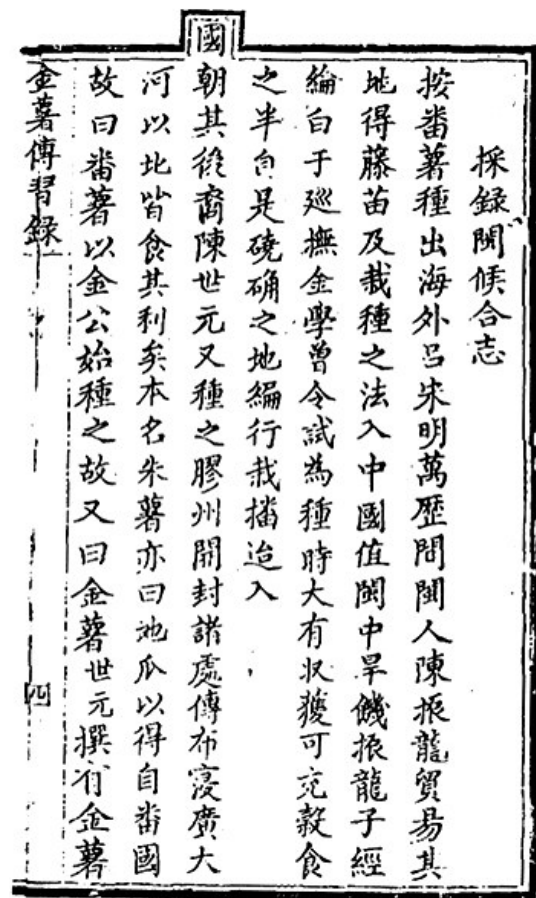 採録閩候合志
按番薯種出海外吕宋明萬歷間閩人陳振龍貿易其
地得藤苗及栽種之法入中國值閩中旱饑振龍子經
綸白于廵撫金學曽令試為種時大有収獲可充穀食
之半自是磽确之地編行栽播迨入
國朝其後裔陳世元又種之膠州開封諸處傳布寖廣大
河以北皆食其利矣本名朱薯亦曰地瓜以得自番國
故曰番薯以金公始種之故又曰金薯世元撰有金薯
金薯傳習録 四